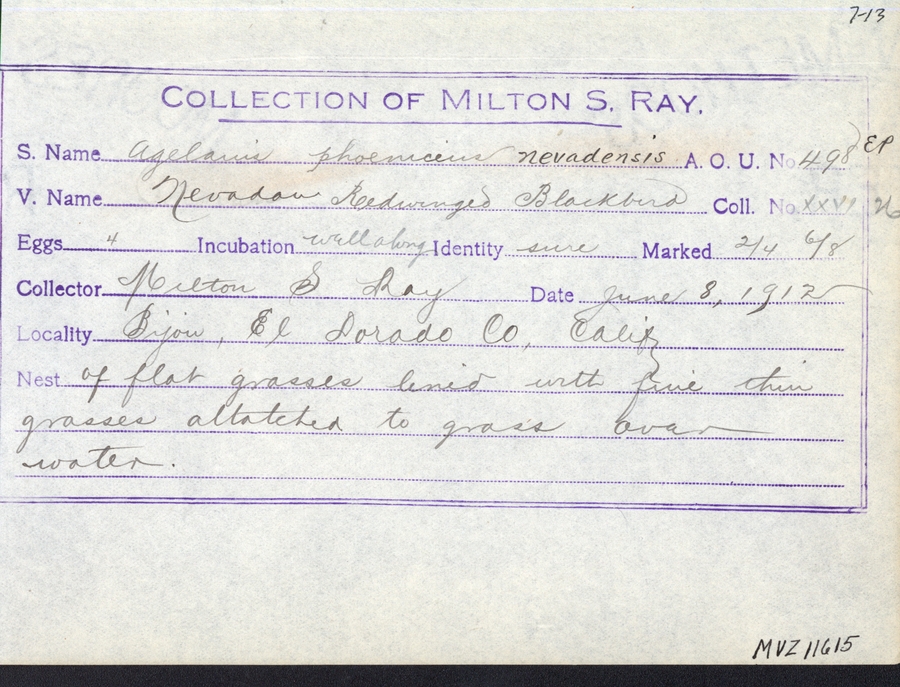 7-13
COLLECTION OF MILTON S. RAY.
S. Name Agelaius phoeniceus nevadensis A. O. U. No 498 EP
V. Name Nevadan Redwinged Blackbird Coll. No. XXVI
Eggs 4 Incubation well along Identity sure Marked 2/4 6/8
Collector Milton S Ray Date June 8, 1912
Locality Bijou, El Dorado Co, Calif
Nest of flat grasses lined with fine thin
grasses attatched to grass over
water.
MVZ 11615